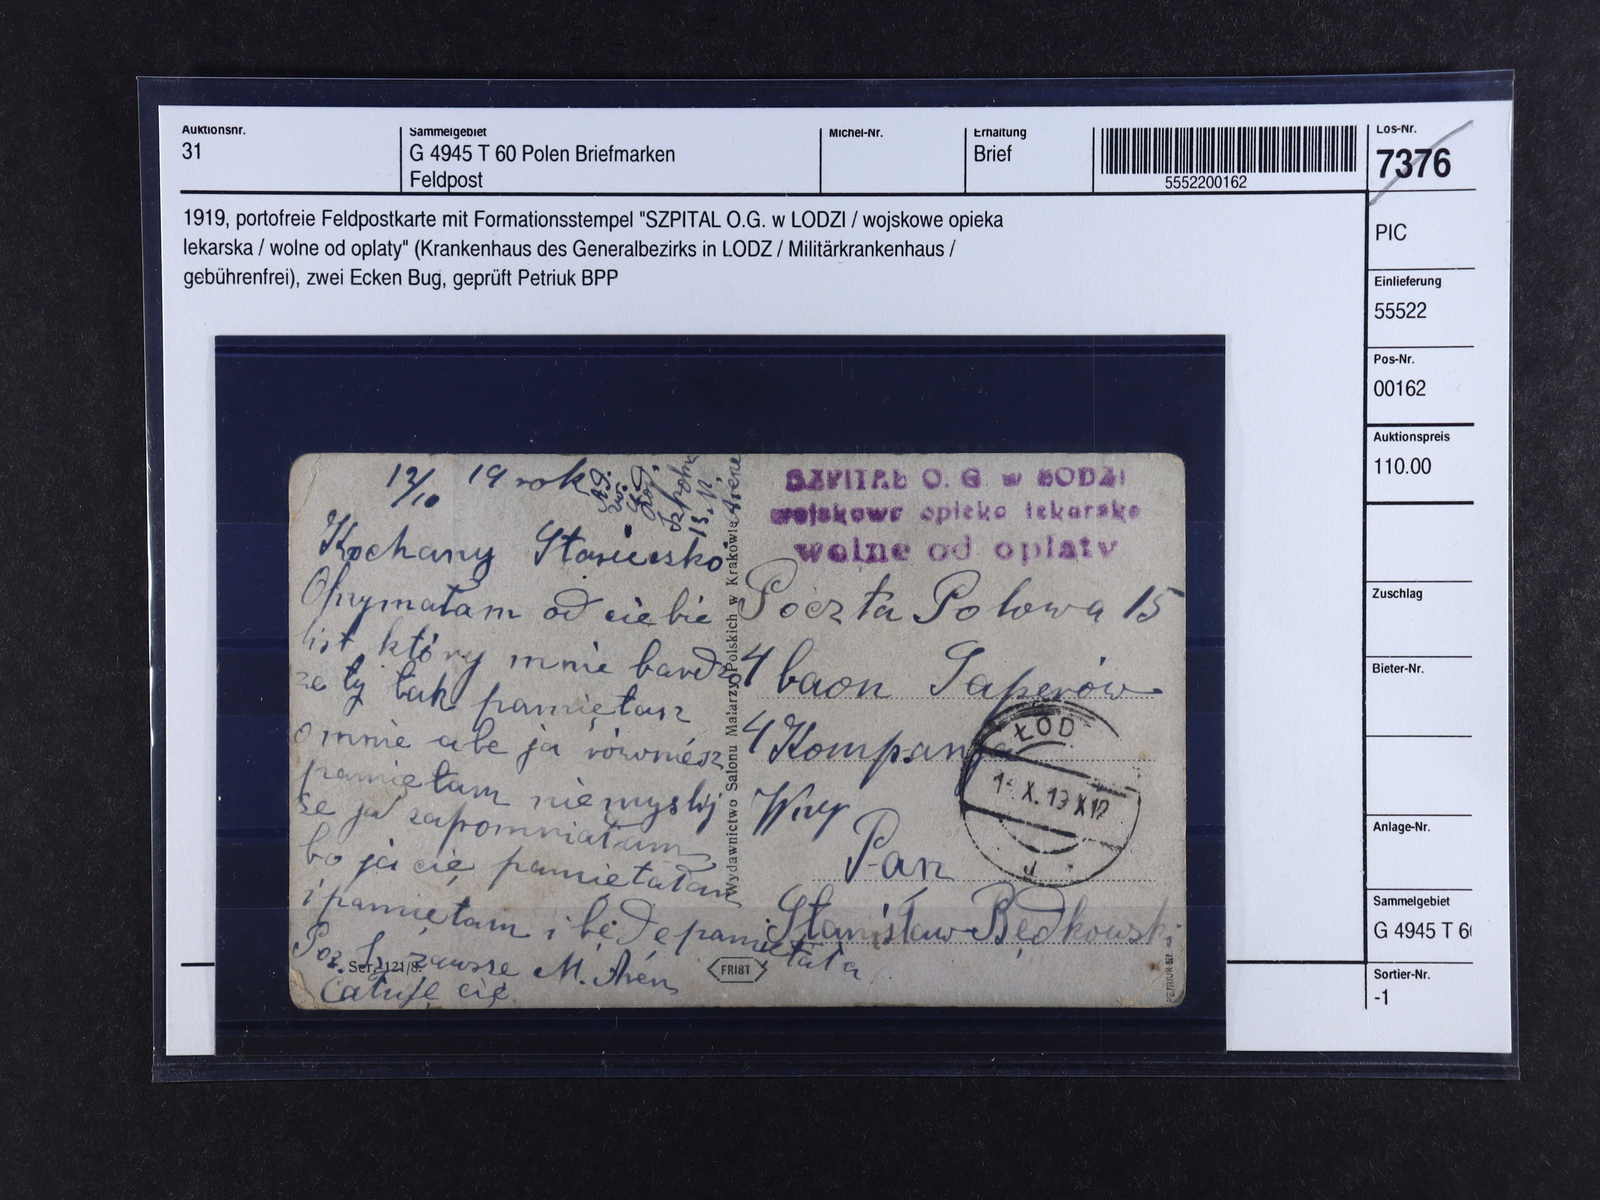 Auktionsnr.
31
Sammelgebiet
G 4945 T 60 Polen Briefmarken
Feldpost
Michel-Nr.
Erhaltung
Brief
5552200162
Los-Nr.
7376
1919, portofreie Feldpostkarte mit Formationsstempel "SZPITAL O.G. w LODZI / wojskowe opieka
lekarska / wolne od oplaty" (Krankenhaus des Generalbezirks in LODZ / Militärkrankenhaus /
gebührenfrei), zwei Ecken Bug, geprüft Petriuk BPP
PIC
Einlieferung
55522
Pos-Nr.
00162
Auktionspreis
110.00
Zuschlag
Bieter-Nr.
Anlage-Nr.
Sammelgebiet
G 4945 T 6
Sortier-Nr.
-1
12/10 19 rok
Kochany
Otrzymałam od ciebie
list który mnie
że ty tak pamiętasz
o mnie ale ja również
pamiętam niemyślij
że ja zapomniałam
bo ja cię pamiętałam
i pamiętam i będe pamiętała
zawsze M.
Całuję cię
Ser. 121/8.
Wydawnictwo Salonu Malarzy Polskich w Krakowie
FRIST
SZPITAL O. G. w ŁODZI
wojskowe opieka lekarska
wolne od oplaty
Poczta Polowa 15
4 baon Saperów
4 Kompanja
Wny
Pan
Stanisław Będkowski
ŁÓD
X.19 X12